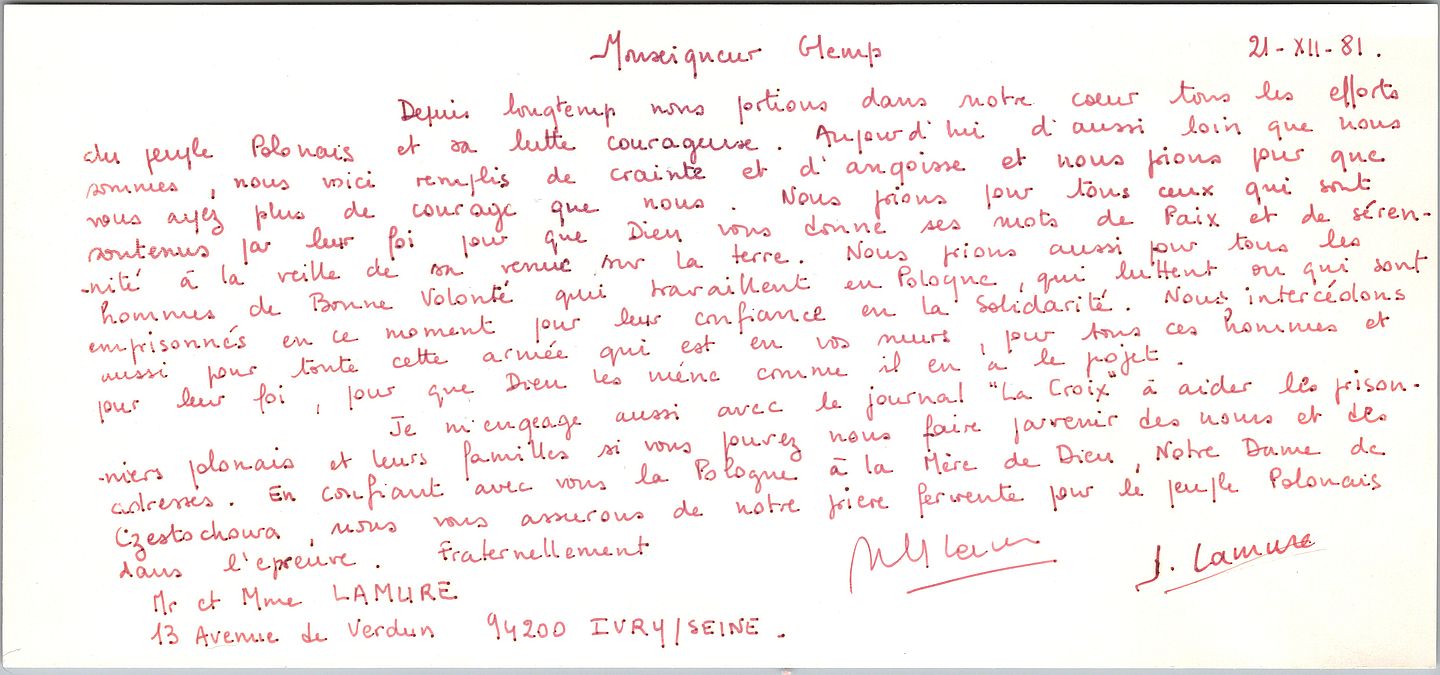 Monseigneur Glemp 21-XII-81.
Depuis longtemp nous portions dans notre coeur tous les efforts
du peuple Polonais et sa lutte courageuse. Aujourd'hui d'aussi loin que nous
sommes, nous voici remplis de crainte et d'angoisse et nous prions pour que
vous ayez plus de courage que nous. Nous prions pour tous ceux qui sont
soutenus par leur foi pour que Dieu vous donne ses mots de Paix et de séren-
-nité à la veille de sa venue sur la terre. Nous prions aussi pour tous les
hommes de Bonne Volonté qui travaillent en Pologne, qui luttent ou qui sont
emprisonnés en ce moment pour leur confiance en la Solidarité. Nous intercédons
aussi pour toute cette armée qui est en vos murs, pour tous ces hommes et
pour leur foi, pour que Dieu les mène comme il en a le projet.
Je m'engeage aussi avec le journal "La Croix" à aider les prison-
-niers polonais et leurs familles si vous pouvez nous faire parvenir des noms et des
adresses. En confiant avec vous la Pologne à la Mère de Dieu, Notre Dame de
Czestochowa, nous vous assurons de notre priere fervente pour le peuple Polonais
dans l'epreuve. Fraternellement
J. Lamure
Mr et Mme LAMURE
13 Avenue de Verdun 94200 IVRY/SEINE.